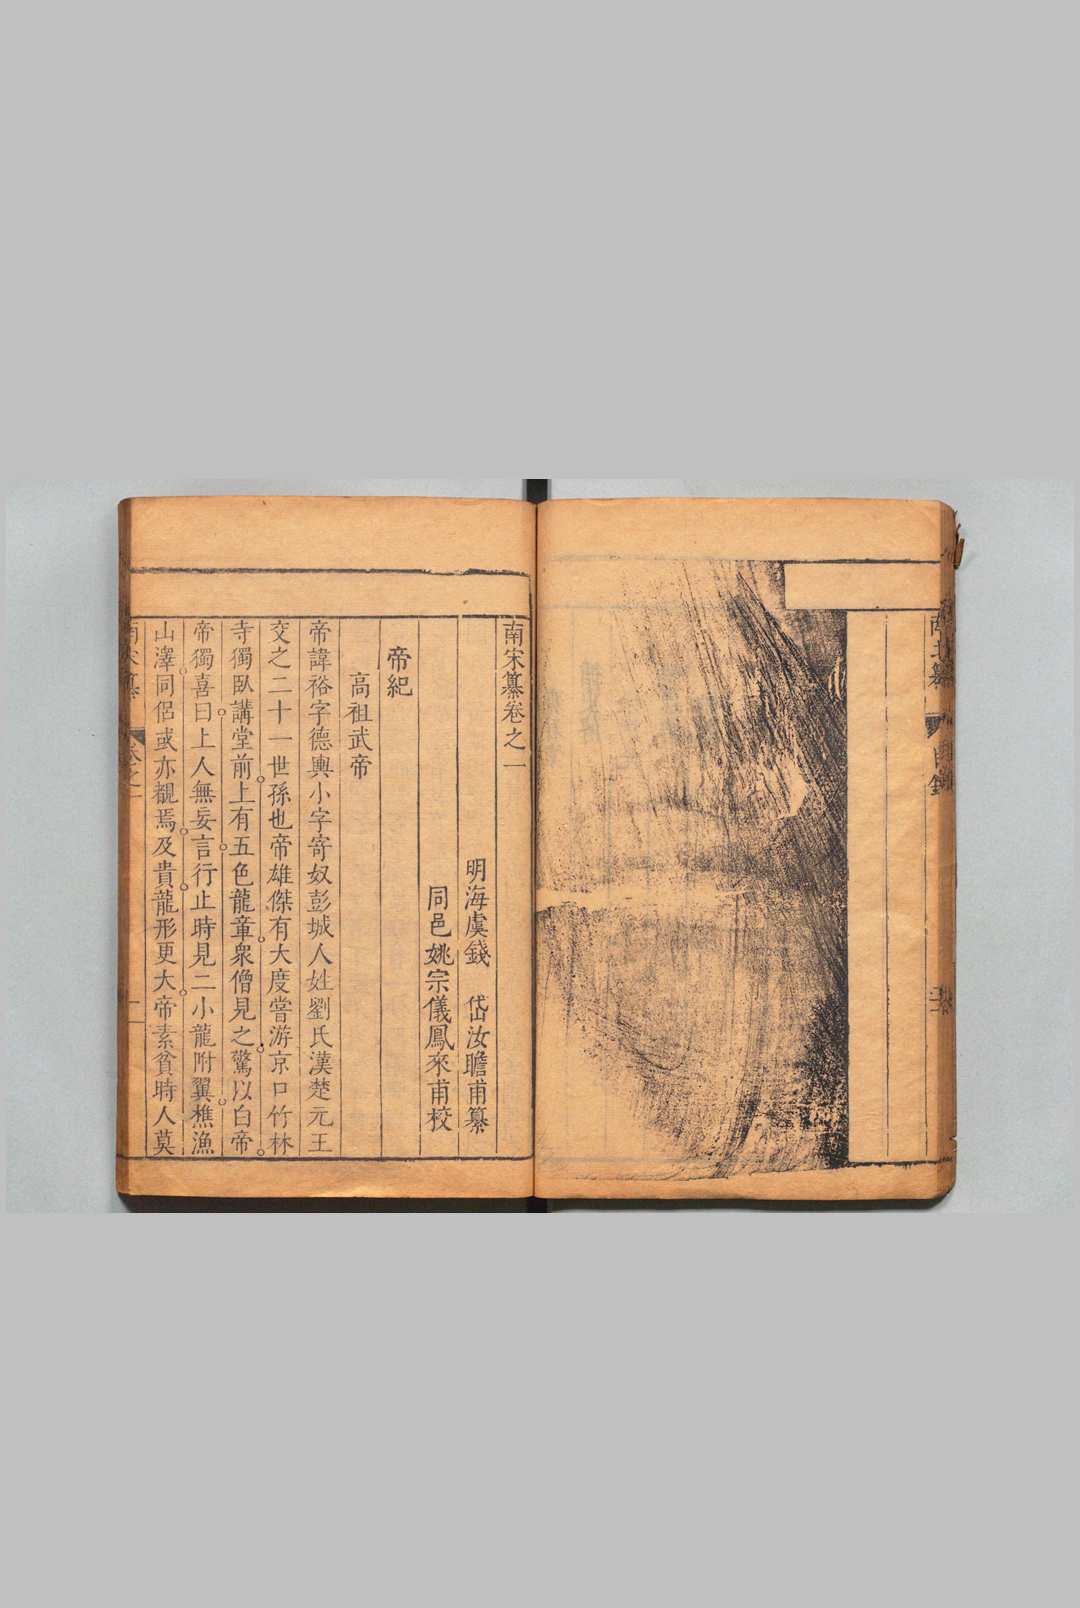 目錄
南宋纂卷之一
明海虞錢 岱汝瞻甫纂
同邑姚宗儀鳳來甫校
帝紀
高祖武帝
帝諱裕字德輿小字寄奴彭城人姓劉氏漢楚元王
交之二十一世孫也帝雄傑有大度嘗游京口竹林
寺獨臥講堂前上有五色龍章衆僧見之驚以白帝
帝獨喜曰上人無妄言行止時見二小龍附翼樵漁
山澤同侶或亦覩焉及貴龍形更大帝素貧時人莫
南宋纂 卷之一